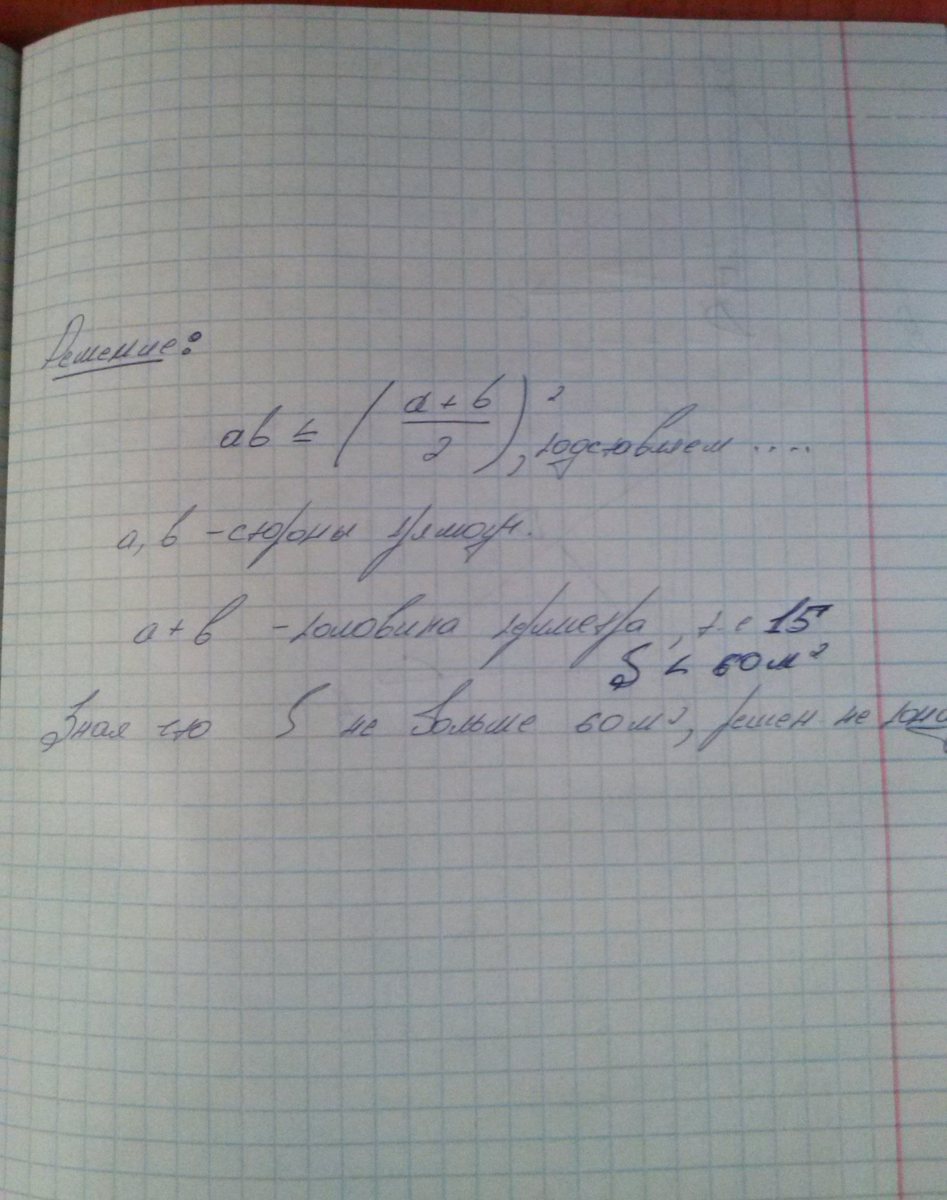 Решение:
ab ≤ (a + b / 2)², подставляем ....
a, b - стороны прямоуг.
a + b - половина периметра, т.е 15
S < 60 м²
Зная что S не больше 60 м², решен не